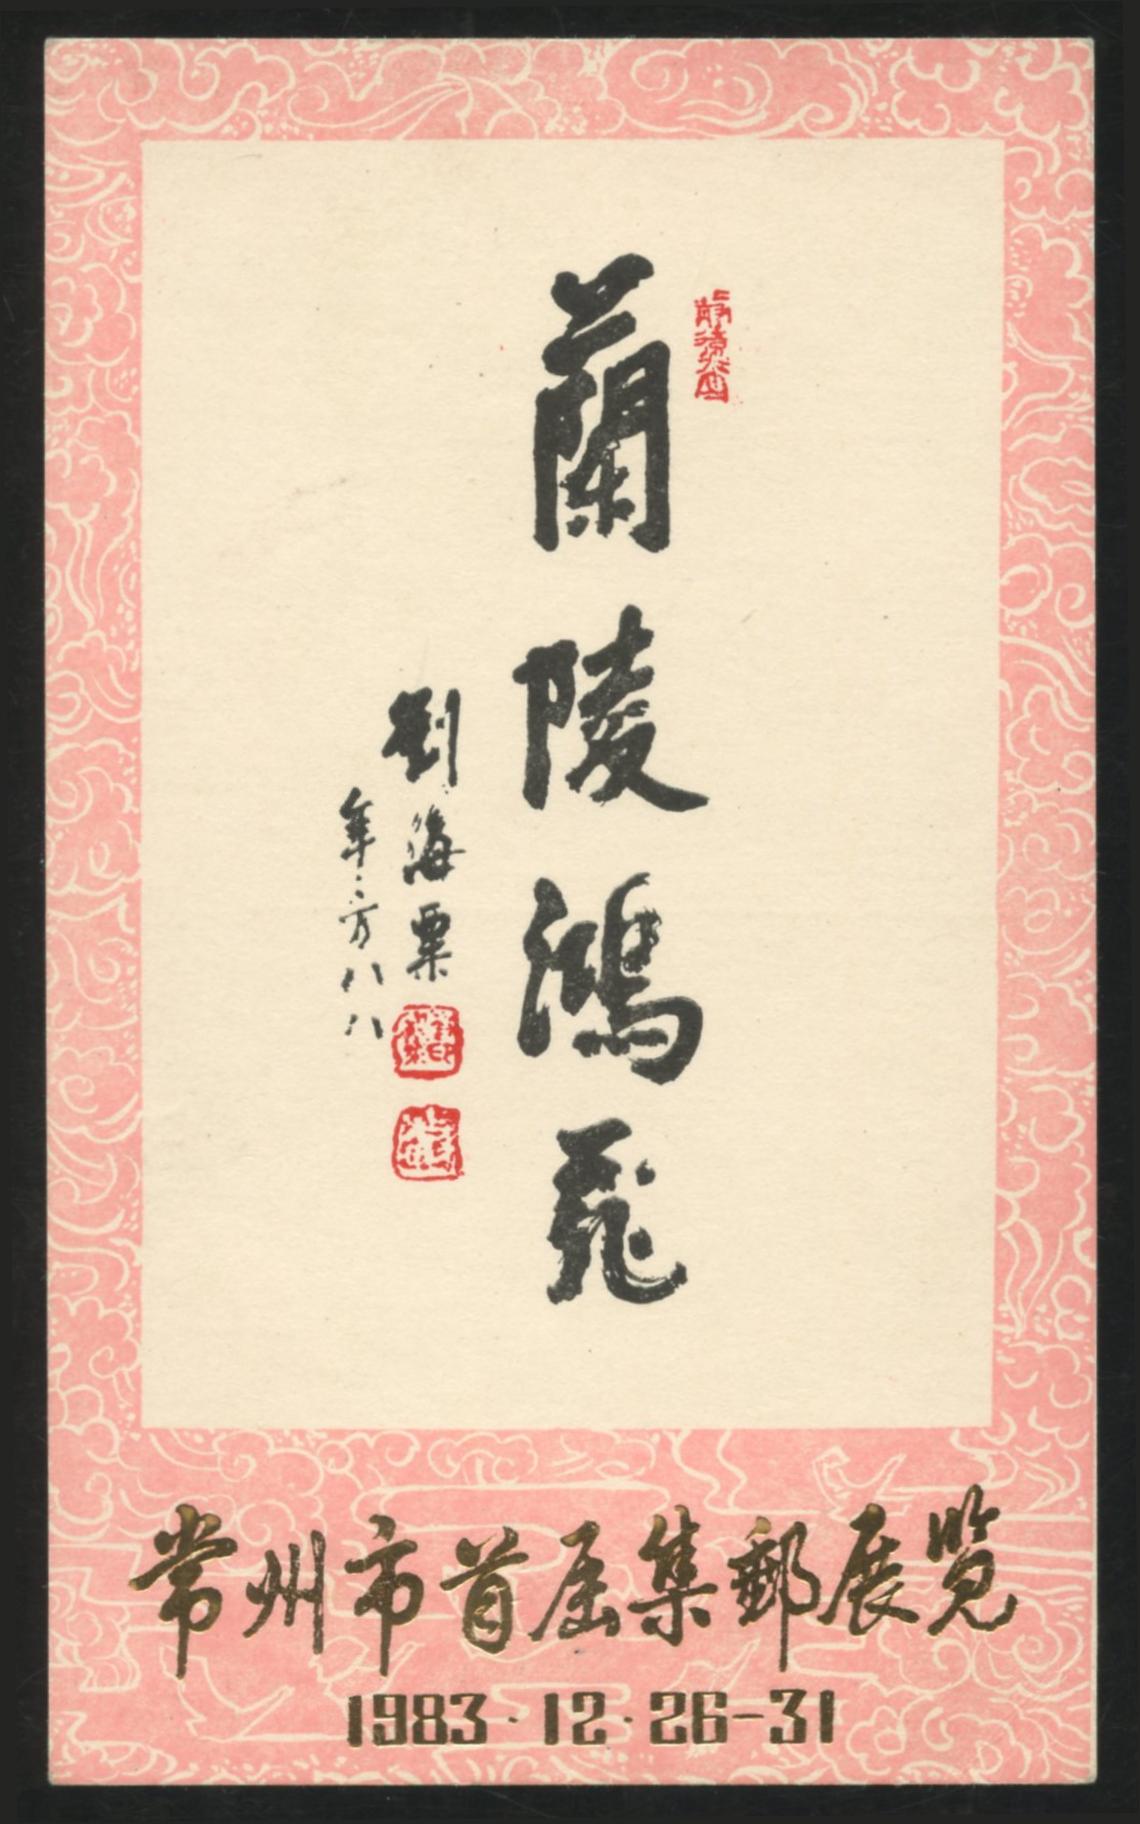 蘭陵鴻飛
劉海粟
年方八八
常州市首届集郵展览
1983·12·26-31